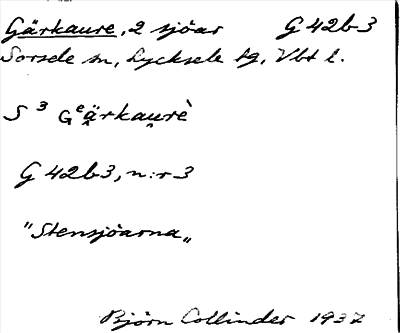 Gärkaure, 2 sjöar G 42b3
Sorsele sn, Lycksele tg, Vbt l.
S 3 Geärkaurè
G 42b3, n:r 3
"Stensjöarna„
Björn Collinder 1937